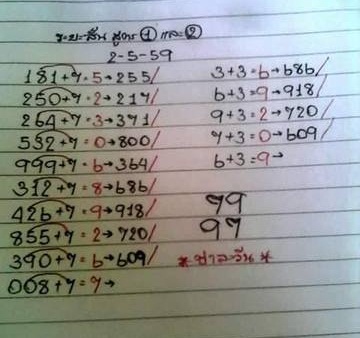 ระยะสิ้น สูตร ① และ ②
2-5-59
181+7=5→255/
250+7=2→217/
264+7=3→371/
532+7=0→800/
999+7=6→364/
312+7=8→686/
426+7=9→918/
855+7=2→720/
390+7=6→609/
008+7=7→
3+3=6→686/
6+3=9→918/
9+3=2→720/
7+3=0→609/
6+3=9→
79
97
*ชาละวัน*